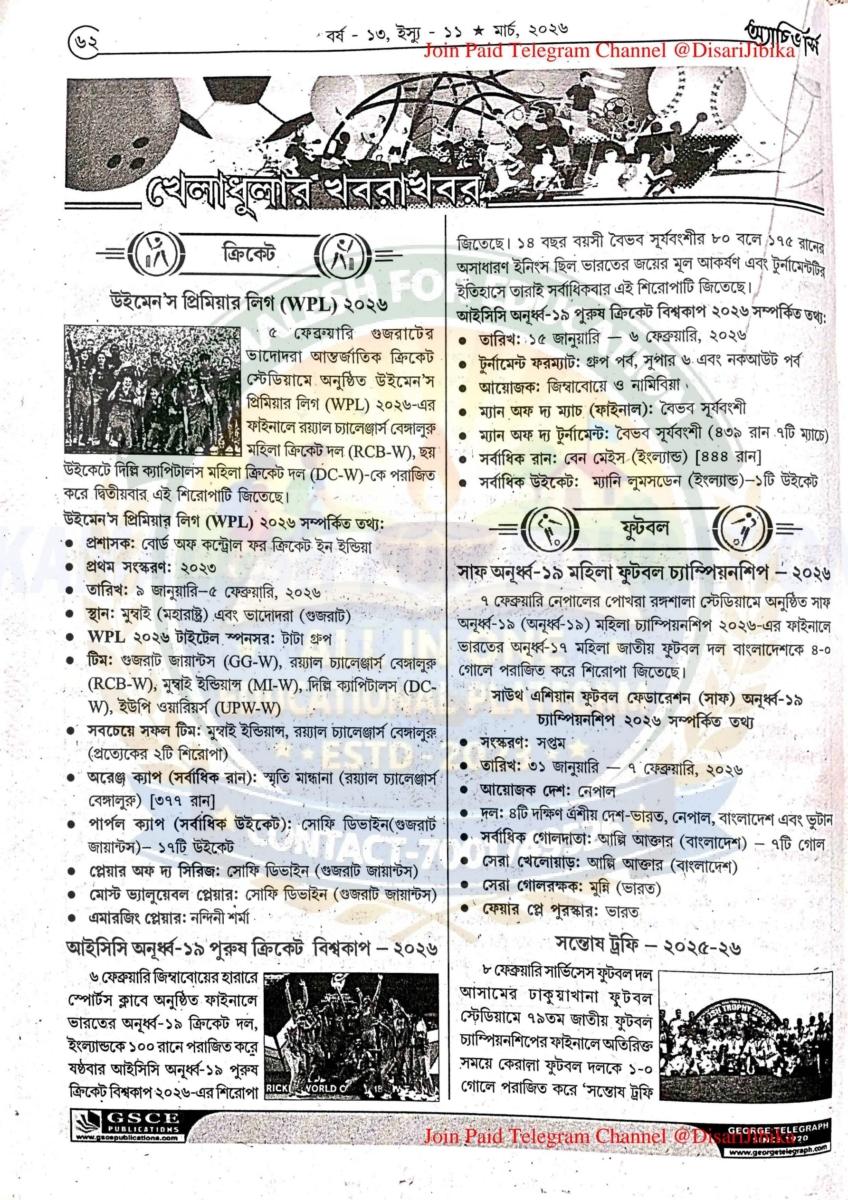 ৬২
বর্ষ - ১৩, ইস্যু - ১১ ★ মার্চ, ২০২৬
অ্যাচিভার্স
Join Paid Telegram Channel @DisariJibika
খেলাধুলার খবরাখবর
ক্রিকেট
উইমেন'স প্রিমিয়ার লিগ (WPL) ২০২৬
৫ ফেব্রুয়ারি গুজরাটের
ভাদোদরা আন্তর্জাতিক ক্রিকেট
স্টেডিয়ামে অনুষ্ঠিত উইমেন'স
প্রিমিয়ার লিগ (WPL) ২০২৬-এর
ফাইনালে রয়্যাল চ্যালেঞ্জার্স বেঙ্গালুরু
মহিলা ক্রিকেট দল (RCB-W), ছয়
উইকেটে দিল্লি ক্যাপিটালস মহিলা ক্রিকেট দল (DC-W)-কে পরাজিত
করে দ্বিতীয়বার এই শিরোপাটি জিতেছে।
উইমেন'স প্রিমিয়ার লিগ (WPL) ২০২৬ সম্পর্কিত তথ্য:
● প্রশাসক: বোর্ড অফ কন্ট্রোল ফর ক্রিকেট ইন ইন্ডিয়া
● প্রথম সংস্করণ: ২০২৩
● তারিখ: ৯ জানুয়ারি–৫ ফেব্রুয়ারি, ২০২৬
● স্থান: মুম্বাই (মহারাষ্ট্র) এবং ভাদোদরা (গুজরাট)
● WPL ২০২৬ টাইটেল স্পনসর: টাটা গ্রুপ
● টিম: গুজরাট জায়ান্টস (GG-W), রয়্যাল চ্যালেঞ্জার্স বেঙ্গালুরু
(RCB-W), মুম্বাই ইন্ডিয়ান্স (MI-W), দিল্লি ক্যাপিটালস (DC-
W), ইউপি ওয়ারিয়র্স (UPW-W)
● সবচেয়ে সফল টিম: মুম্বাই ইন্ডিয়ান্স, রয়্যাল চ্যালেঞ্জার্স বেঙ্গালুরু
(প্রত্যেকের ২টি শিরোপা)
● অরেঞ্জ ক্যাপ (সর্বাধিক রান): স্মৃতি মান্ধানা (রয়্যাল চ্যালেঞ্জার্স
বেঙ্গালুরু) [৩৭৭ রান]
● পার্পল ক্যাপ (সর্বাধিক উইকেট): সোফি ডিভাইন(গুজরাট
জায়ান্টস)– ১৭টি উইকেট
● প্লেয়ার অফ দ্য সিরিজ: সোফি ডিভাইন (গুজরাট জায়ান্টস)
● মোস্ট ভ্যালুয়েবল প্লেয়ার: সোফি ডিভাইন (গুজরাট জায়ান্টস)
● এমারজিং প্লেয়ার: নন্দিনী শর্মা
আইসিসি অনূর্ধ্ব-১৯ পুরুষ ক্রিকেট বিশ্বকাপ – ২০২৬
৬ ফেব্রুয়ারি জিম্বাবোয়ের হারারে
স্পোর্টস ক্লাবে অনুষ্ঠিত ফাইনালে
ভারতের অনূর্ধ্ব-১৯ ক্রিকেট দল,
ইংল্যান্ডকে ১০০ রানে পরাজিত করে
ষষ্ঠবার আইসিসি অনূর্ধ্ব-১৯ পুরুষ
ক্রিকেট বিশ্বকাপ ২০২৬-এর শিরোপা
জিতেছে। ১৪ বছর বয়সী বৈভব সূর্যবংশীর ৮০ বলে ১৭৫ রানের
অসাধারণ ইনিংস ছিল ভারতের জয়ের মূল আকর্ষণ এবং টুর্নামেন্টটির
ইতিহাসে তারাই সর্বাধিকবার এই শিরোপাটি জিতেছে।
আইসিসি অনূর্ধ্ব-১৯ পুরুষ ক্রিকেট বিশ্বকাপ ২০২৬ সম্পর্কিত তথ্য:
● তারিখ: ১৫ জানুয়ারি — ৬ ফেব্রুয়ারি, ২০২৬
● টুর্নামেন্ট ফরম্যাট: গ্রুপ পর্ব, সুপার ৬ এবং নকআউট পর্ব
● আয়োজক: জিম্বাবোয়ে ও নামিবিয়া
● ম্যান অফ দ্য ম্যাচ (ফাইনাল): বৈভব সূর্যবংশী
● ম্যান অফ দ্য টুর্নামেন্ট: বৈভব সূর্যবংশী (৪৩৯ রান ৭টি ম্যাচে)
● সর্বাধিক রান: বেন মেইস (ইংল্যান্ড) [৪৪৪ রান]
● সর্বাধিক উইকেট: ম্যানি লুমসডেন (ইংল্যান্ড)–১টি উইকেট
ফুটবল
সাফ অনূর্ধ্ব-১৯ মহিলা ফুটবল চ্যাম্পিয়নশিপ – ২০২৬
৭ ফেব্রুয়ারি নেপালের পোখরা রঙ্গশালা স্টেডিয়ামে অনুষ্ঠিত সাফ
অনূর্ধ্ব-১৯ (অনূর্ধ্ব-১৯) মহিলা চ্যাম্পিয়নশিপ ২০২৬-এর ফাইনালে
ভারতের অনূর্ধ্ব-১৭ মহিলা জাতীয় ফুটবল দল বাংলাদেশকে ৪-০
গোলে পরাজিত করে শিরোপা জিতেছে।
সাউথ এশিয়ান ফুটবল ফেডারেশন (সাফ) অনূর্ধ্ব-১৯
চ্যাম্পিয়নশিপ ২০২৬ সম্পর্কিত তথ্য
● সংস্করণ: সপ্তম
● তারিখ: ৩১ জানুয়ারি — ৭ ফেব্রুয়ারি, ২০২৬
● আয়োজক দেশ: নেপাল
● দল: ৪টি দক্ষিণ এশীয় দেশ-ভারত, নেপাল, বাংলাদেশ এবং ভুটান
● সর্বাধিক গোলদাতা: আল্পি আক্তার (বাংলাদেশ) – ৭টি গোল
● সেরা খেলোয়াড়: আল্পি আক্তার (বাংলাদেশ)
● সেরা গোলরক্ষক: মুন্নি (ভারত)
● ফেয়ার প্লে পুরস্কার: ভারত
সন্তোষ ট্রফি – ২০২৫-২৬
৮ ফেব্রুয়ারি সার্ভিসেস ফুটবল দল
আসামের ঢাকুয়াখানা ফুটবল
স্টেডিয়ামে ৭৯তম জাতীয় ফুটবল
চ্যাম্পিয়নশিপের ফাইনালে অতিরিক্ত
সময়ে কেরালা ফুটবল দলকে ১-০
গোলে পরাজিত করে 'সন্তোষ ট্রফি
GSCE
PUBLICATIONS
www.gscepublications.com
Join Paid Telegram Channel @DisariJibika
GEORGE TELEGRAPH
www.georgetelegraph.com